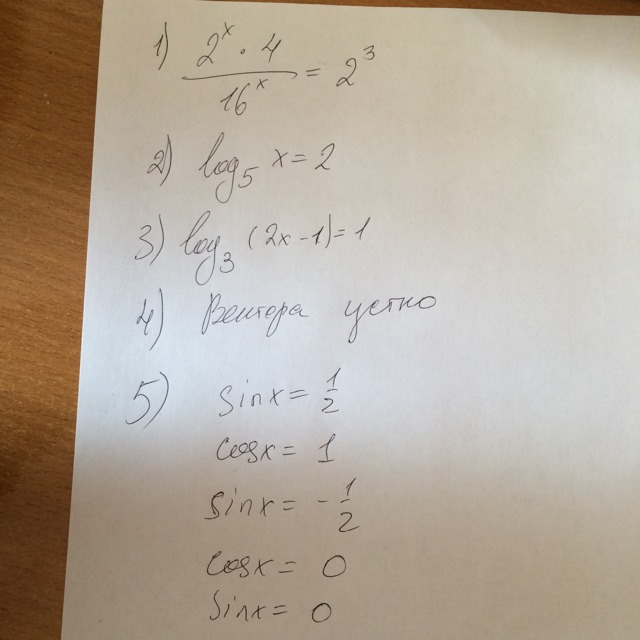 1) (2^x · 4) / 16^x = 2^3
2) log₅ x = 2
3) log₃ (2x - 1) = 1
4) Вектора устно
5) sin x = 1/2
cos x = 1
sin x = - 1/2
cos x = 0
sin x = 0